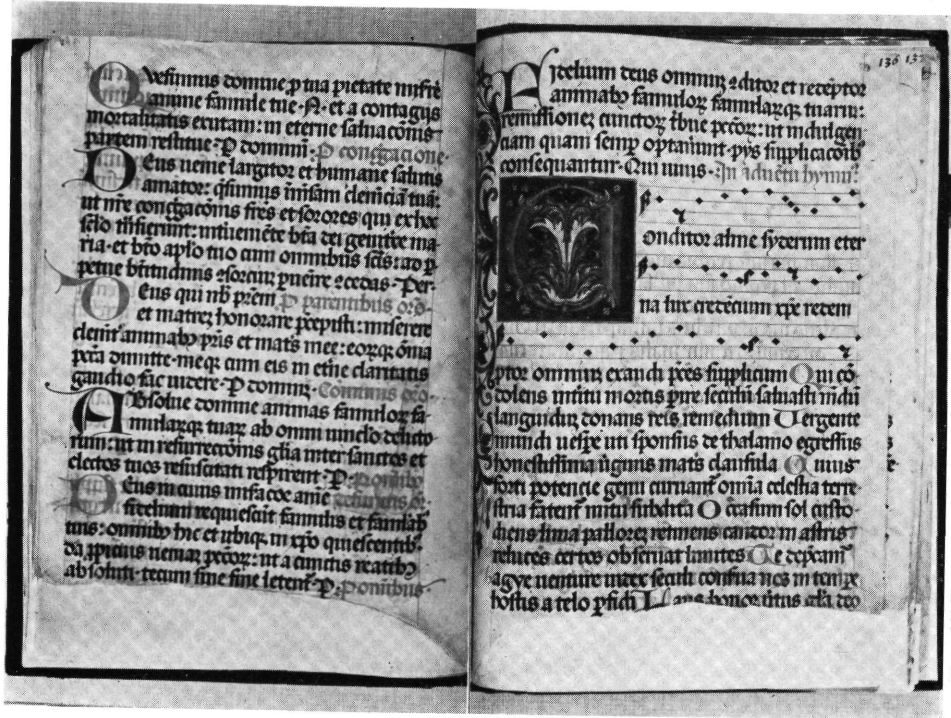 Quesumus domine ꝓ tua pietate miſere
anime famule tue · N · et a contagijs
mortalitatis exutam : in eterne saluacōnis
partem restitue · P dominū · P congregacione ·
Deus uenie largitor et humane salutis
amator : qsumus imēsam clemēciam tuā :
ut nr̄e congregacōnis fr̄es et sorores qui ex hoc
sclo tn̄sierunt : intueniēte btā dei genitͥce ma
ria · et btō aplo tuo cum omnibus scīs : ad ꝑ
petue btitudinis ꝯsorciū puēire ꝯcedas · Per ·
Deus qui nb̄ prēm P parentibus orō ·
et matrez honorare pͨepisti : miserere
clenīt animabꝫ pr̄is et mat͛s mee : eorꝙ om̄ia
pccā dimitte · meqꝫ cum eis in etn̄e claritatis
gaudio fac uiuere · P dominū · Communis orō ·
Absolue domine animas famuloꝝ fa
mulaꝝqꝫ tuaꝝ ab omni uinclo delicto
rum : ut in resurreccōnis gl̄ia inter sanctos et
electos tuos resuscitati respirent · P · P omībꝫ
Deus in cuius miſacōe anīe
fidelium requiescūt famulis et famulabꝫ
tuis : omnibꝫ hic et ubiqꝫ in xp̄o quiescentibꝫ ·
da ꝓpicius ueniaꝫ pccōꝝ : ut a cunctis reatibꝫ
absoluti · tecum sine fine letent͛ · P · P omibus ·
136 137
Fidelium deus omniuꝫ ꝯditor et redēptor
animabꝫ famuloꝝ famulaꝝqꝫ tuarū :
remissionez cunctoꝝ tͥbue pccōꝝ : ut indulgen
ciam quam semꝑ optauerunt · pijs supplicacōibꝫ
consequantur · Qui uiuis · In aduētu hymnꝰ
Conditor alme syderum eter
na lux credencium xp̄e redem
ptor omniuꝫ exaudi pͨces supplicum Qui cō
dolens intͥtu mortis ꝑire seculū saluasti mūdū
languidū donans reis remedium Uergente
mundi uesꝑe uti sponsus de thalamo egressus
honestissima uͥginis mat͛s clausula Cuius
forti potencie genu curuant͛ omīa celestia terre
stria fatent͛ nutu subdita Occasum sol custo
diens luna pallorez retinens candor in astris
relucēs certos obseruat limites Te dep̄camͬ
agye uenture iudex seculi conserua nos in tempͬe
hostis a telo ꝑfidi Laus honor uͥtus gl̄ia deo